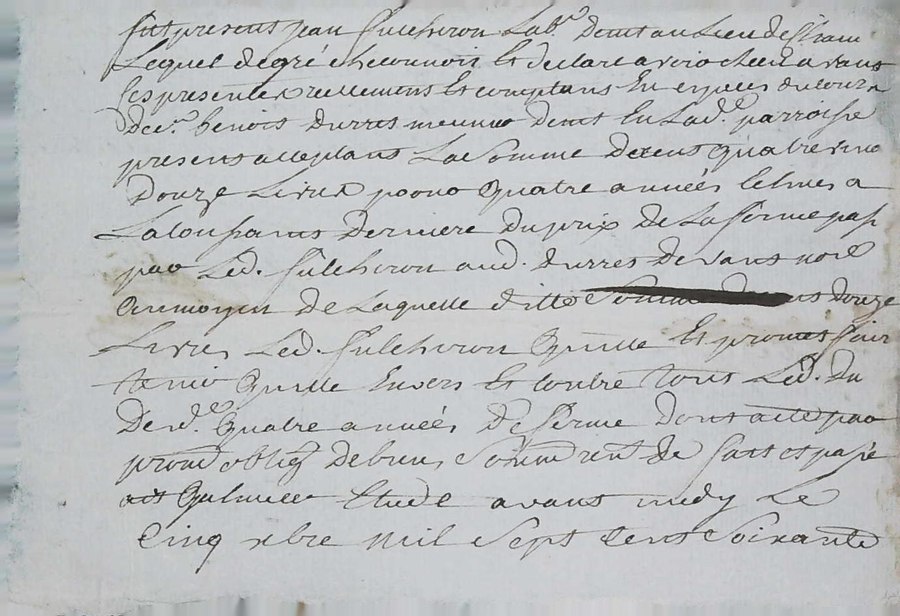 fut present Jean fulchiron Lab.r demt au Lieu de
Lequel de gré a Reconnu Et declare avoir cheu avant
les presentes reellement Et comptant En especes du cours
De s.r benoit durres meunie demt En Lad.e parroisse
present acceptant La Somme de cent quatre vint
Douze Livres pour quatre années Echues a
La toussaints derniere du prix de La ferme passé
par Led. fulchiron aud. durres devant no.e
Au moyen de Laquelle ditte Somme Douze
Livres Led. fulchiron Quitte Et promet faire
tenir quitte Envers Et contre tous Led. du
Des d.e quatre années De ferme dont acte par
prom obligõn de biens Soumõn renõn de fait et passé
Etude avant midy Le
Cinq xbre mil Sept Cent Soixante